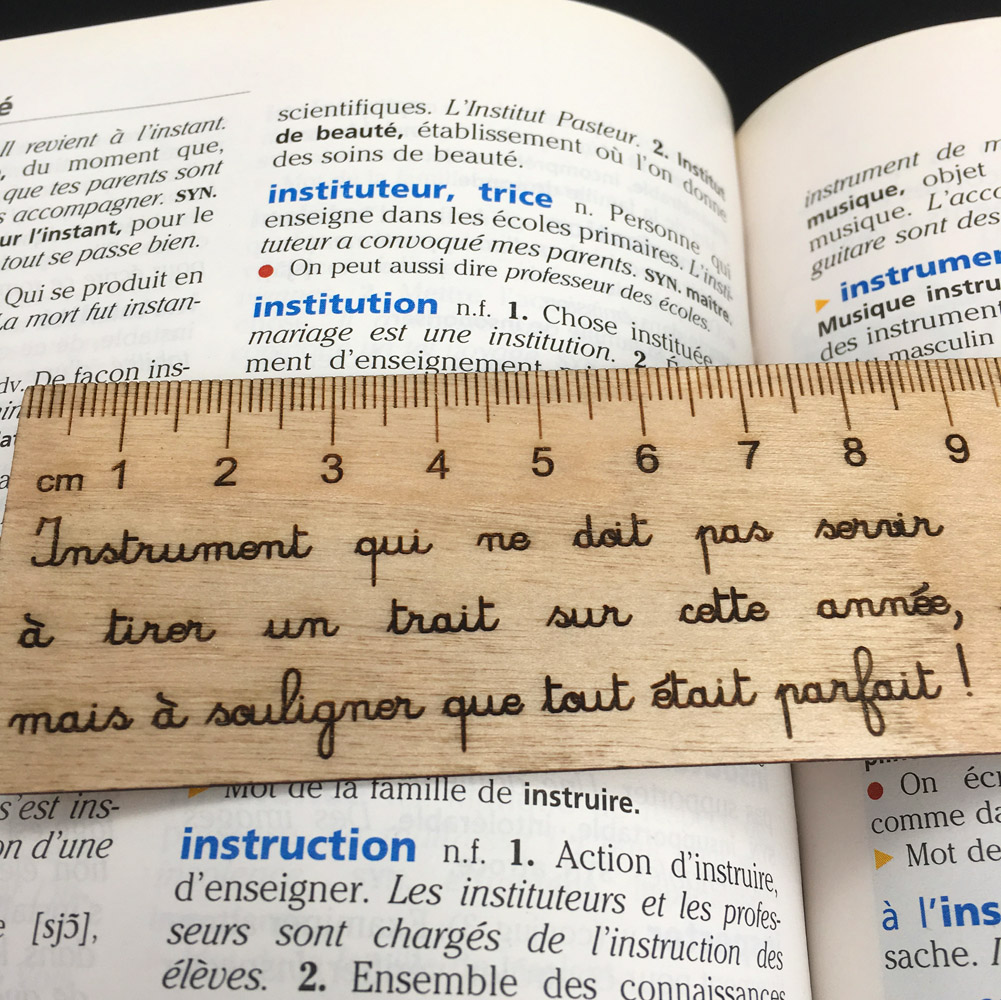 é
Il revient à l'instant.
du moment que,
que tes parents sont
accompagner. SYN.
ur l'instant, pour le
tout se passe bien.
Qui se produit en
La mort fut instan-
dv. De façon ins-
scientifiques. L'Institut Pasteur. 2. Institut
de beauté, établissement où l'on donne
des soins de beauté.
instituteur, trice n. Personne qui
enseigne dans les écoles primaires. L'insti-
tuteur a convoqué mes parents. SYN. maître.
● On peut aussi dire professeur des écoles.
institution n.f. 1. Chose instituée
mariage est une institution. 2.
ment d'enseignement
instrument de m
musique, objet
musique. L'acc
guitare sont des
instrumen
Musique instru
des instrument
masculin
cm 1 2 3 4 5 6 7 8 9
Instrument qui ne doit pas servir
à tirer un trait sur cette année,
mais à souligner que tout était parfait !
s'est ins-
on d'une
[sjɔ̃],
Mot de la famille de instruire.
instruction n.f. 1. Action d'instruire,
d'enseigner. Les instituteurs et les profes-
seurs sont chargés de l'instruction des
élèves. 2. Ensemble des connaissances
● On écri
comme da
Mot de
à l'ins
sache.